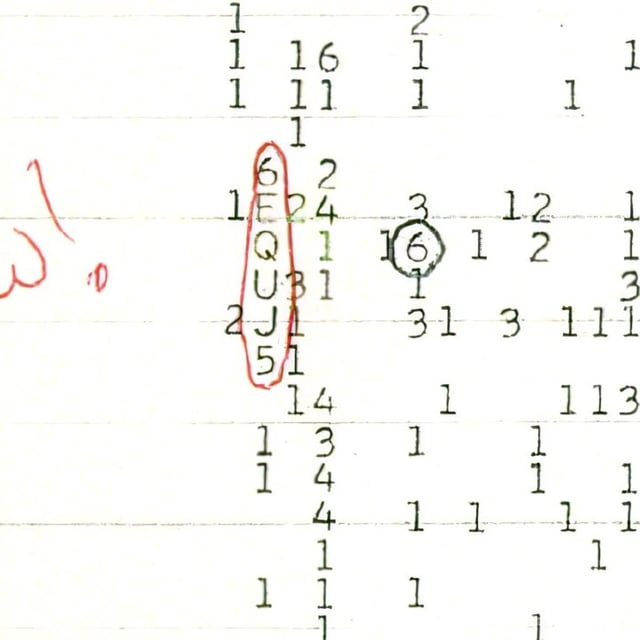 1 2
1 16 1 1
1 11 1 1
1
6 2
1E24 3 12 1
Q 1 16 1 2 1
U31 1 3
2J1 31 3 111
51
14 1 113
1 3 1 1
1 4 1 1
4 1 1 1 1
1 1
1 1 1
1 1
w!